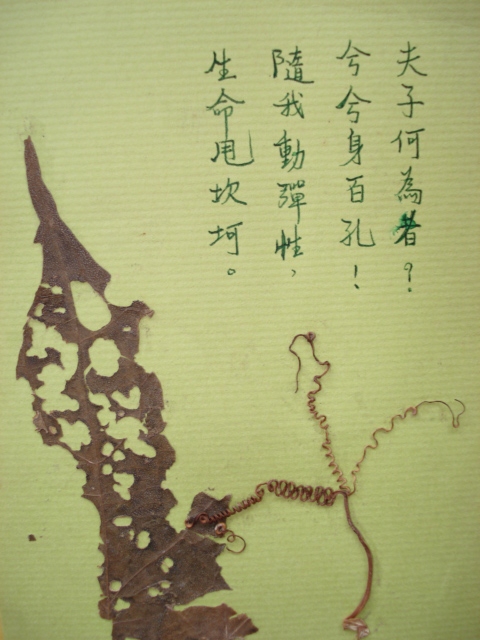 夫子何為者？
兮兮身百孔！
隨我動彈性，
生命甩坎坷。